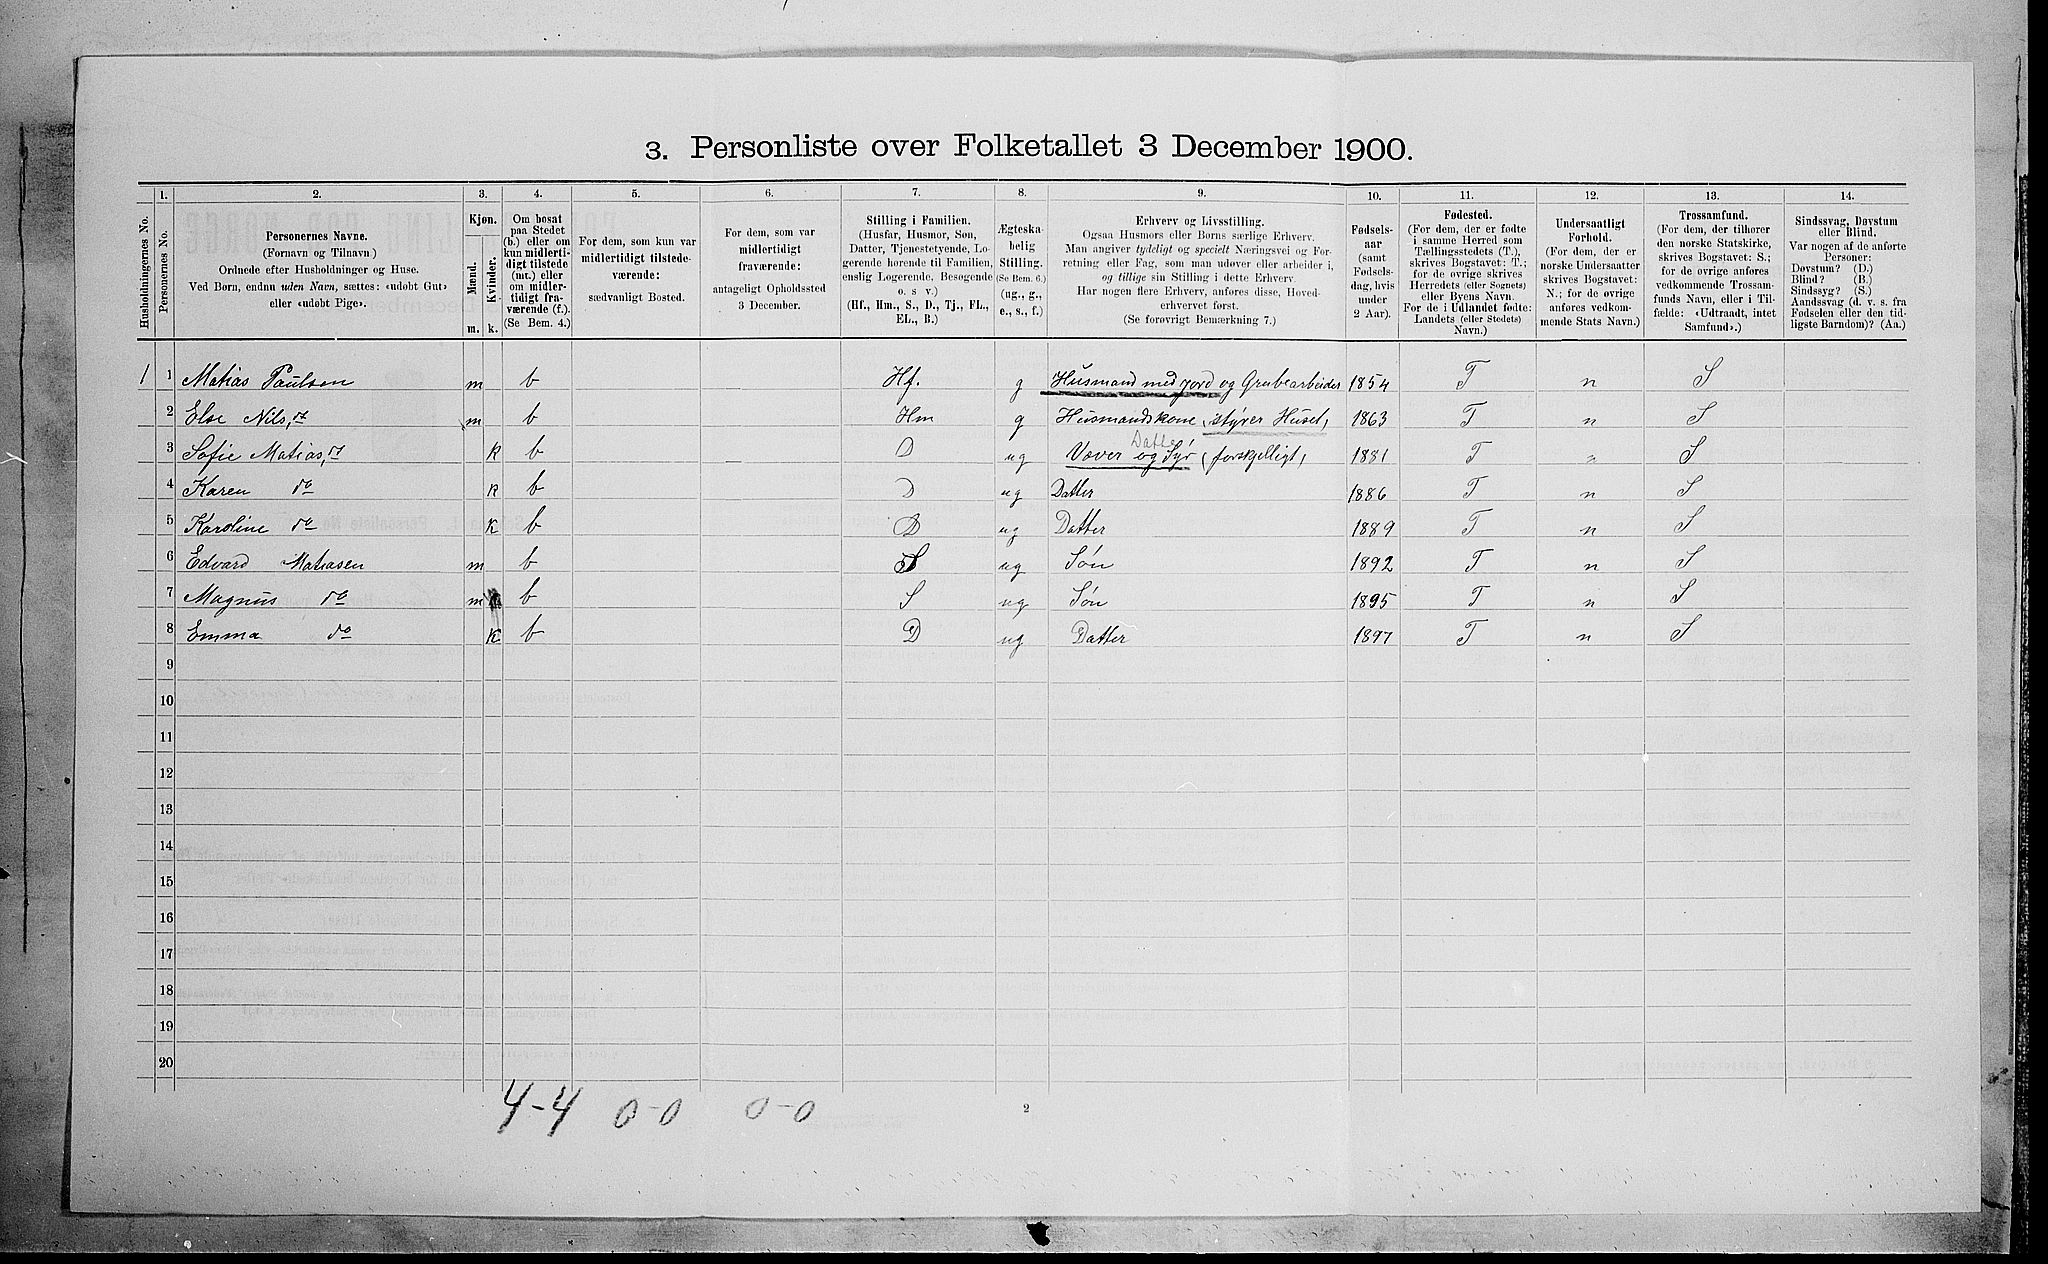 3. Personliste over Folketallet 3 December 1900.
1. 2. 3. 4. 5. 6. 7. 8. 9. 10. 11. 12. 13. 14.
Husholdningernes No.
Personernes No.
Personernes Navne.
(Fornavn og Tilnavn)
Ordnede efter Husholdninger og Huse.
Ved Børn, endnu uden Navn, sættes: «udøbt Gut»
eller «udøbt Pige».
Kjøn.
Mænd.
Kvinder.
m. k.
Om bosat
paa Stedet
(b.) eller om
kun midlerti-
digt tilstede
(mt.) eller
om midler-
tidigt fra-
værende (f.).
(Se Bem. 4.)
For dem, som kun var
midlertidigt tilstede-
værende:
sædvanligt Bosted.
For dem, som var
midlertidigt
fraværende:
antageligt Opholdssted
3 December.
Stilling i Familien.
(Husfar, Husmor, Søn,
Datter, Tjenestetyende, Lo-
gerende hørende til Familien,
enslig Logerende, Besøgende
o. s v.)
(Hf., Hm., S., D., Tj., FL.,
EL., B.)
Ægteska-
belig
Stilling.
(Se Bem. 6.)
(ug., g.,
e., s., f.)
Erhverv og Livsstilling.
Ogsaa Husmors eller Børns særlige Erhverv.
Man angiver tydeligt og specielt Næringsvei og For-
retning eller Fag, som man udøver eller arbeider i,
og tillige sin Stilling i dette Erhverv.
Har nogen flere Erhverv, anføres disse, Hoved-
erhvervet først.
(Se forøvrigt Bemærkning 7.)
Fødsels-
aar
(samt
Fødsels-
dag, hvis
under
2 Aar).
Fødested.
(For dem, der er fødte
i samme Herred som
Tællingsstedets (T.),
skrives Bogstavet: T.;
for de øvrige skrives
Herredets (eller Sognets)
eller Byens Navn.
For de i Udlandet fødte:
Landets (eller Stedets)
Navn.)
Undersaatligt
Forhold.
(For dem, der er
norske Undersaatter
skrives Bogstavet:
N.; for de øvrige
anføres vedkom-
mende Stats Navn.)
Trossamfund.
(For dem, der tilhører
den norske Statskirke,
skrives Bogstavet: S.;
for de øvrige anføres
vedkommende Trossam-
funds Navn, eller i Til-
fælde: «Udtraadt, intet
Samfund».)
Sindssvag, Døvstum
eller Blind.
Var nogen af de anførte
Personer:
Døvstum? (D.)
Blind? (B.)
Sindssyg? (S.)
Aandssvag (d. v. s. fra
Fødselen eller den tid-
ligste Barndom)? (Aa.)
1 1 Matias Paulsen m b Hf. g Husmand med jord og Grubearbeider 1854 T n S
2 Else Nils,dt m b Hm g Husmandskone (styrer Huset) 1863 T n S
Datter
3 Sofie Matias,dt k b D ug Væver og Syr (forskjelligt) 1881 T n S
4 Karen do k b D ug Datter 1886 T n S
5 Karoline do k b D ug Datter 1889 T n S
6 Edvard Matiasen m b S ug Søn 1892 T n S
7 Magnus do m b S ug Søn 1895 T n S
8 Emma do k b D ug Datter 1897 T n S
9
10
11
12
13
14
15
16
17
18
19
20
4-4 0-0 0-0
2